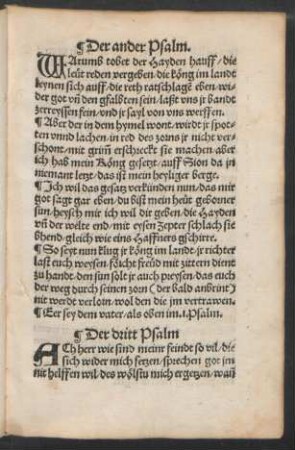 ¶Der ander Psalm.
WArumb tobet der Hayden hauff/die
leüt reden vergeben/die köng im landt
leynen sich auff/die reth ratschlagẽ eben/wi-
der got vñ den gsalbten sein/laßt vns jr bandt
zerreyssen fein/vnd jr sayl von vns werffen.
¶Aber der in dem hymel wont/wirdt jr spot-
ten vnnd lachen/in red des zorns jr nicht ver-
schont/mit grim̃ erschreckt sie machen/aber
ich hab mein Köng gesetz/auff Sion da jn
niemant letz/das ist mein heyliger berge.
¶Ich wil das gesatz verkünden nun/das mir
got sagt gar eben/du bist mein heüt geborner
sun/heysch mir ich wil dir geben/die Hayden
vñ der welte end/mit eysen zepter schlach sie
bhend/gleich wie eins Haffners gschirre.
¶So seyt nun klug jr köng im landt/jr richter
last euch weysen/förcht freüd mit zittern dient
zu handt/den sun solt jr auch preysen/das euch
der weg durch seinen zorn (der bald anbrint)
nit werdt verlorn/wol den die jm vertrawen.
¶Eer sey dem vater/als oben im.1.Psalm.
¶Der dritt Psalm
ACh herr wie sind meinr feindt so vil/die
sich wider mich setzen/sprechen got jm
nit helffen wil/des wölstu mich ergetzen/wañ